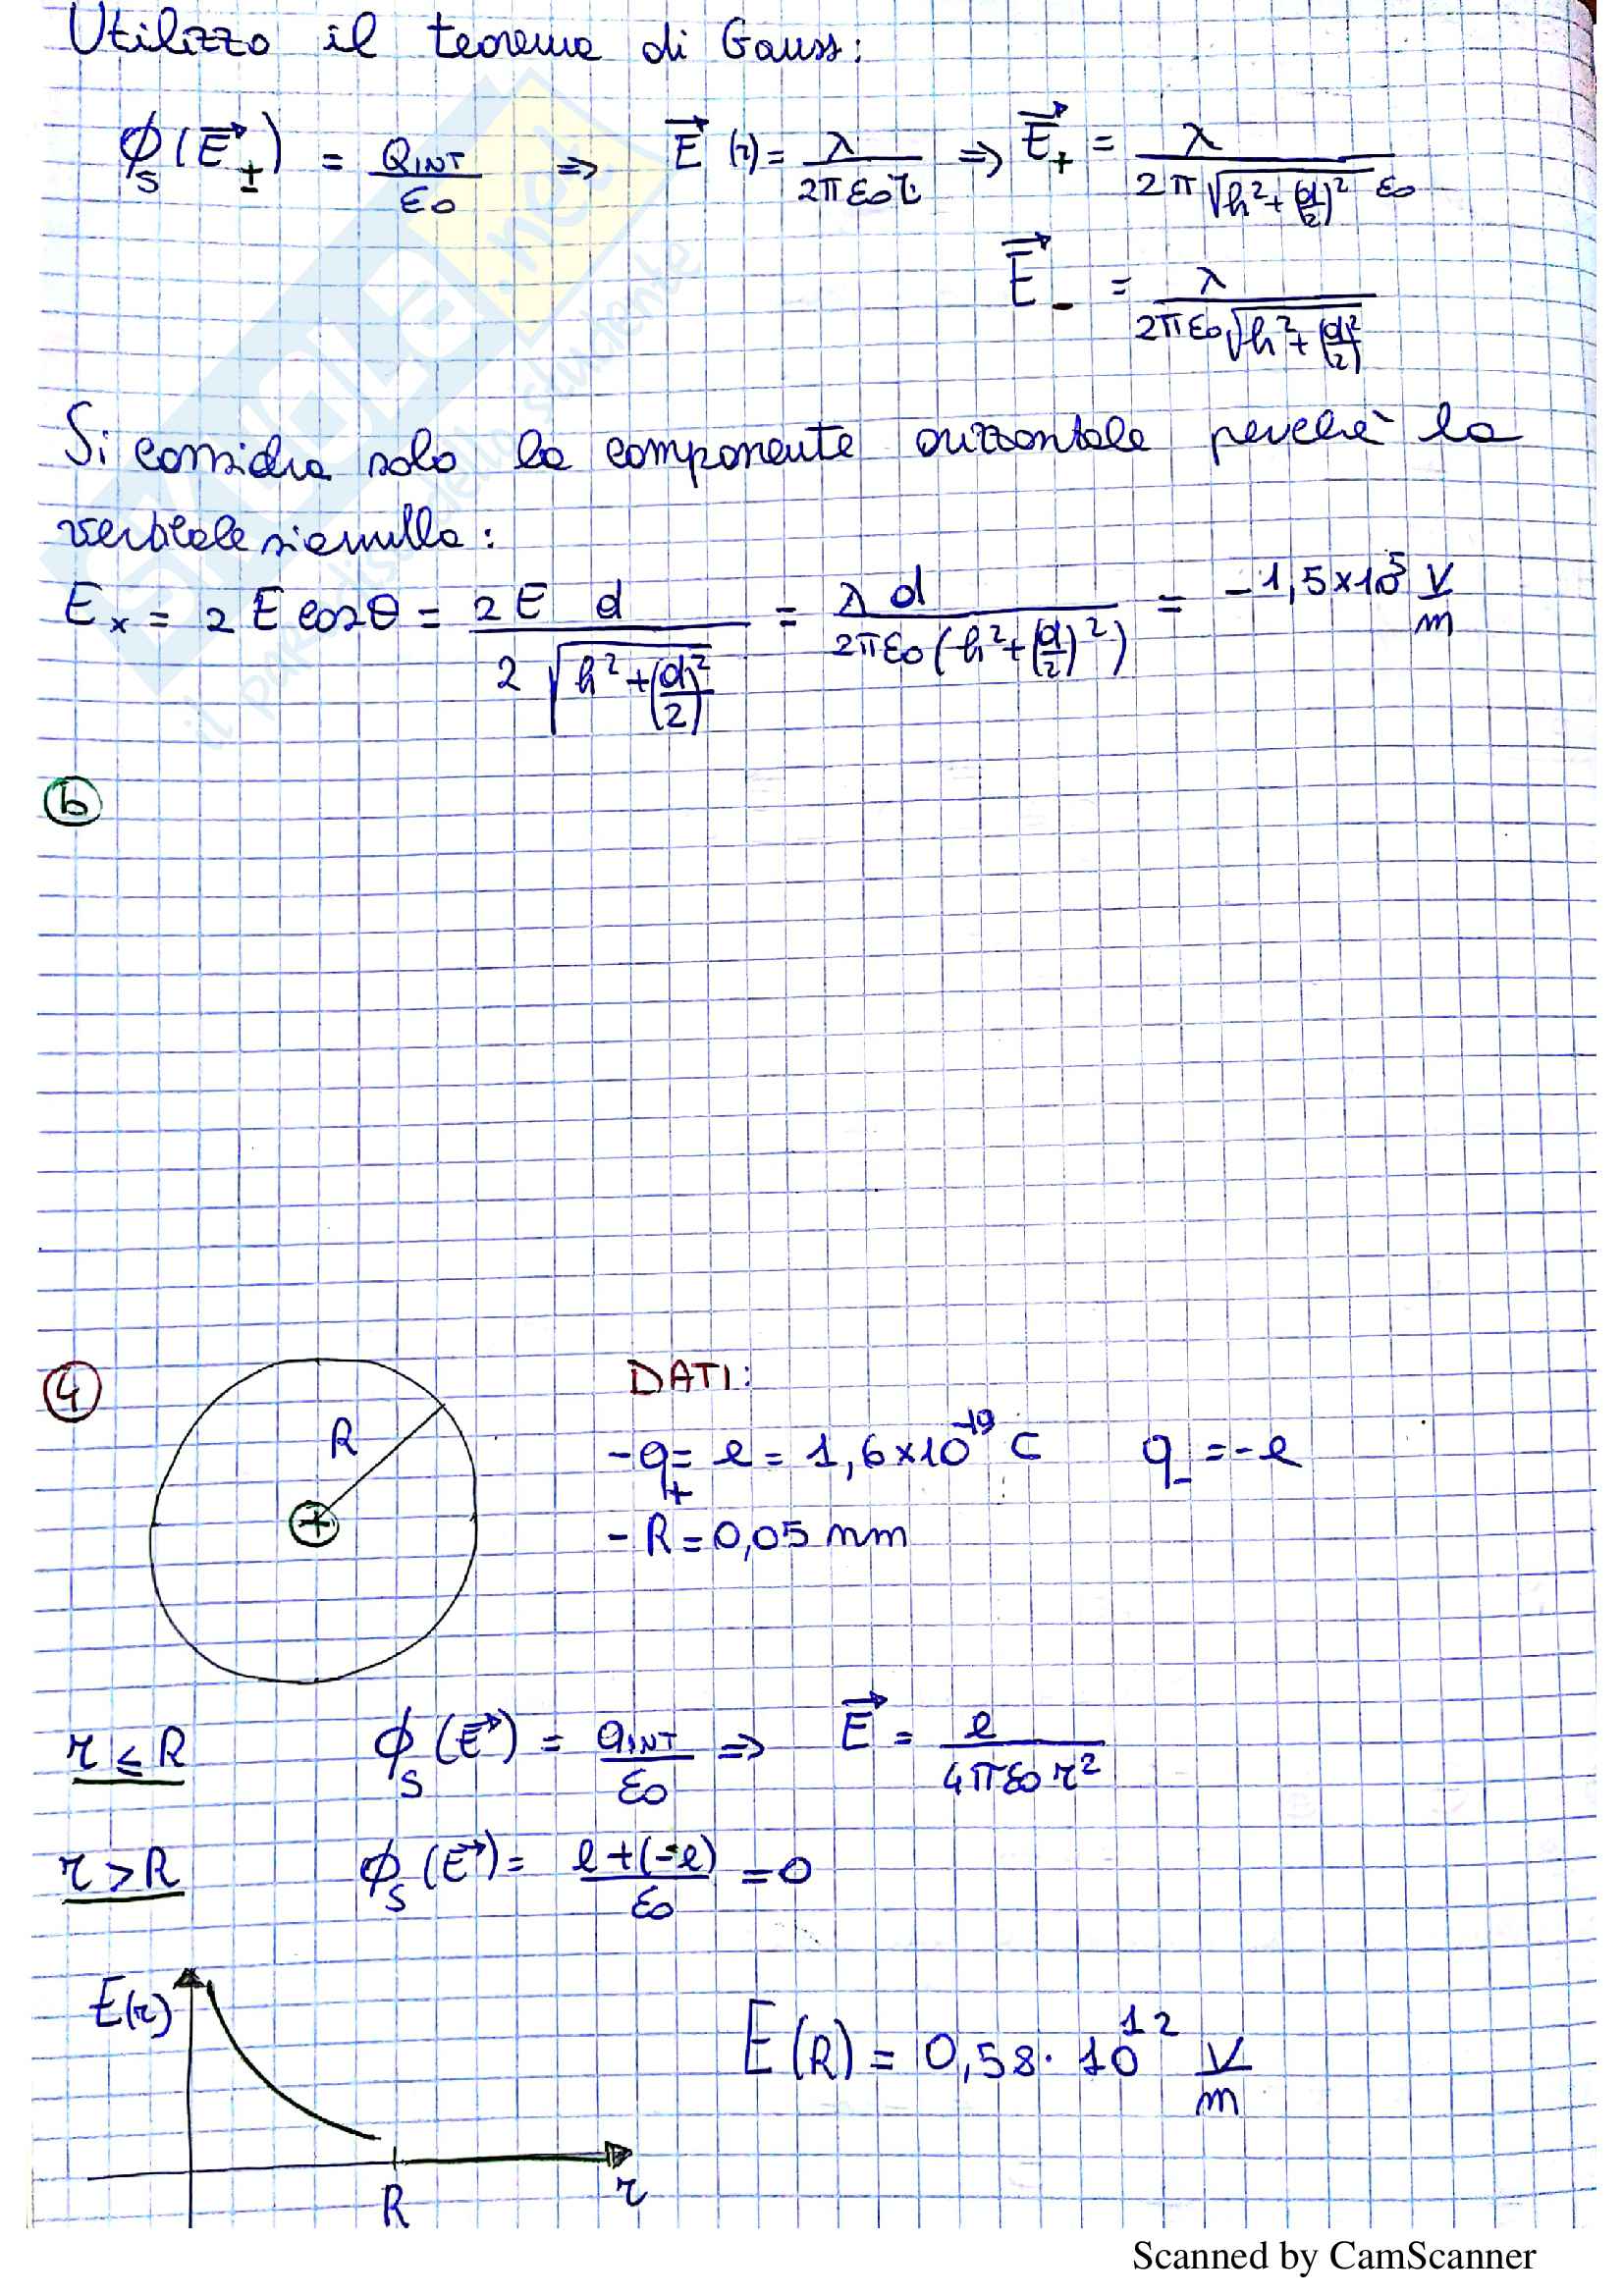 Utilizzo il teorema di Gauss:
ϕ_S (E⃗_±) = Q_INT / ε₀ ⇒ E⃗ (r) = λ / 2πε₀r ⇒ E⃗₊ = λ / 2π √(h² + (d/2)²) ε₀
E⃗₋ = λ / 2πε₀ √(h² + (d/2)²)
Si considera solo la componente orizzontale perché la
verticale si annulla:
Eₓ = 2 E cosθ = 2 E d / 2 √(h² + (d/2)²) = λ d / 2πε₀ (h² + (d/2)²) = -1,5×10⁵ V/m
b
4
R
+
DATI:
- q₊ = e = 1,6×10⁻¹⁹ C q₋ = -e
- R = 0,05 nm
r ≤ R ϕ_S (E⃗) = q_INT / ε₀ ⇒ E⃗ = e / 4πε₀r²
r > R ϕ_S (E⃗) = e + (-e) / ε₀ = 0
E(r)
R
r
E(R) = 0,58 · 10¹² V/m
SKUOLA.net
il paradiso dello studente
Scanned by CamScanner